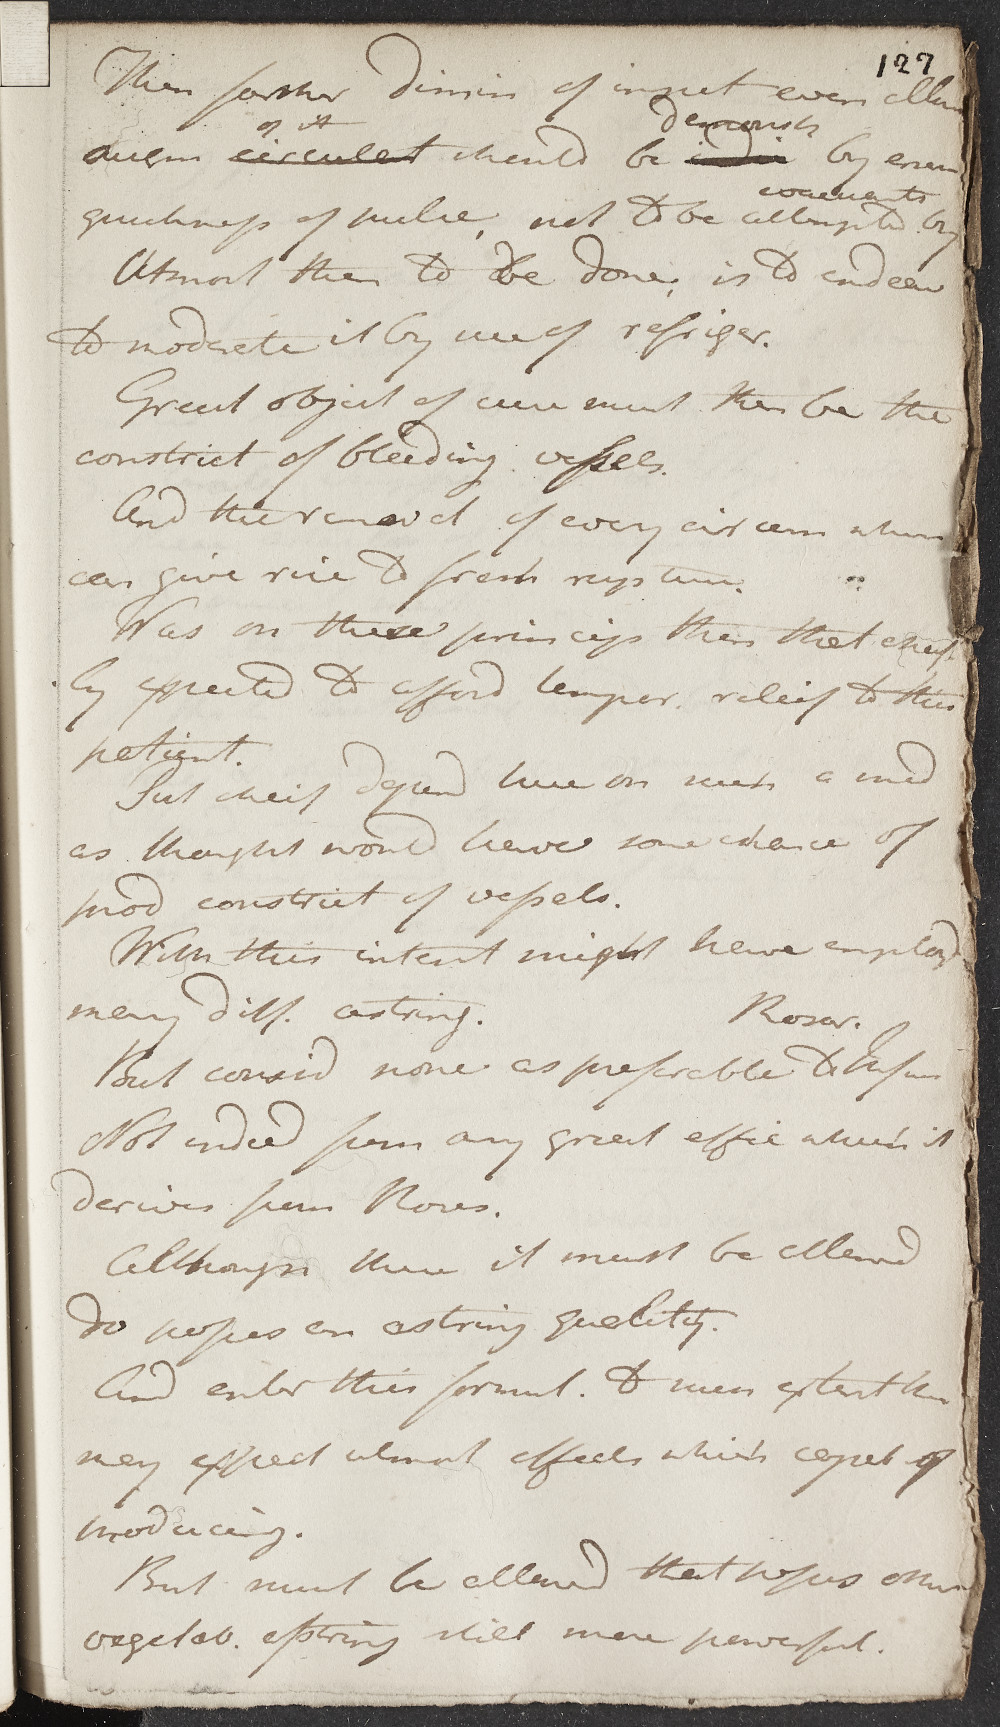 127
Then farther dimin of impet even allow
of it demonst
augm circulat should be indic by even
evacuants
quickness of pulse, not to be attempted by
Utmost then to be done, is to endeav
to moderate it by use of refriger.
Great object of cure must then be the
constrict of bleeding vessels.
And the removal of every circum which
can give rise to fresh rupture.
Was on these princip then that cheif
ly expected to afford tempor. releif to this
patient.
But cheif depend here on such a med
as thought would have some chance of
prod constrict of vessels.
With this intent might have employd
many diff. astring. Rosar.
But consid none as preferable to Infus
Not indeed from any great effic which it
derives from Roses.
Although these it must be allowd
do possess an astring quality.
And under this formul. to some extent
may expect utmost effects which capab of
producing.
But must be allowed that possess other
vegetab. astring still more powerful.